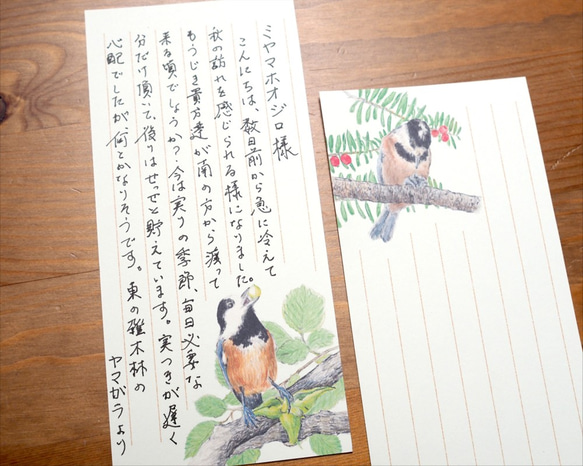 ミヤマホオジロ様
こんにちは、数日前から急に冷えて
秋の訪れを感じられる様になりました。
もうじき貴方達が南の方から渡って
来る頃でしょうか？今は実りの季節、毎日必要な
分だけ頂いて、後りはせっせと貯えています。実つきが遅く
心配でしたが、何とかなりそうです。東の雑木林の
ヤマガラより